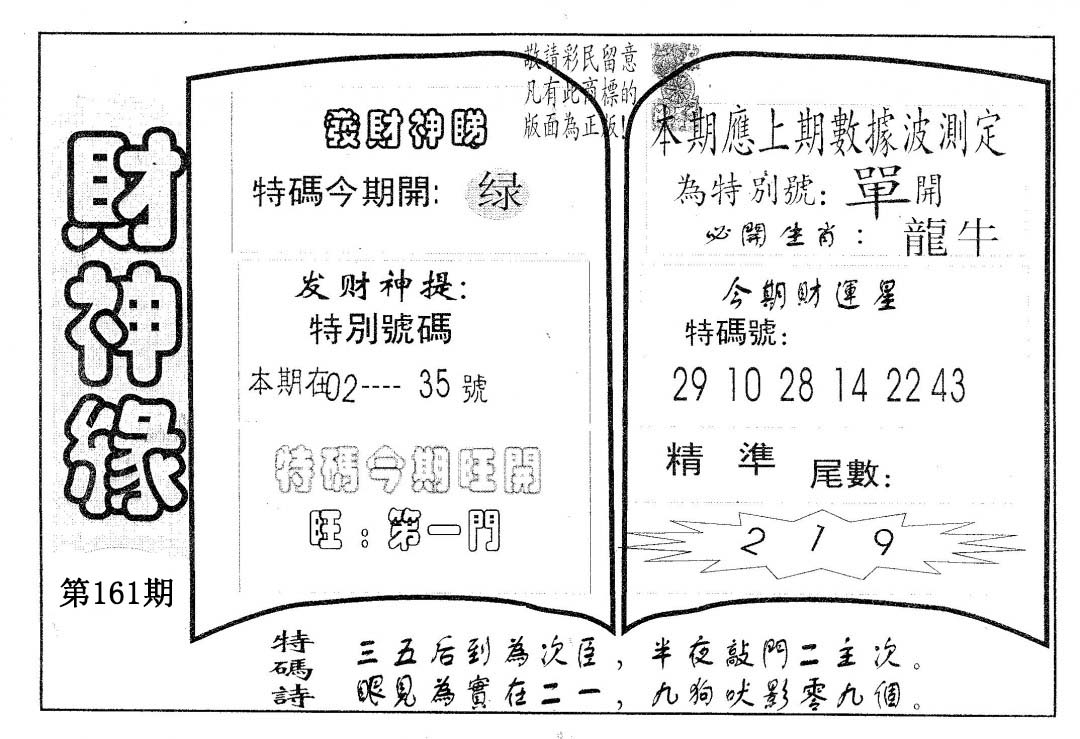 財神緣
第161期
敬請彩民留意
凡有此商標的
版面為正版!
發財神睇
特碼今期開: 绿
发财神提:
特別號碼
本期在02----35號
特碼今期旺開
旺:第一門
本期應上期數據波測定
為特別號: 單開
必開生肖: 龍牛
今期財運星
特碼號:
29 10 28 14 22 43
精準 尾數:
2 1 9
特碼詩
三五后到為次臣,半夜敲門二主次。
眼見為實在二一,九狗吠影零九個。